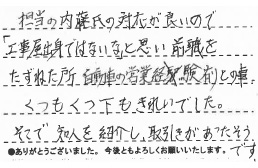 担当の内藤氏の対応が良いので
「工事屋出身ではないな」と思い前職を
たずねた所 自動車の営業経験有との事、
くつもくつ下もきれいでした。
そこで知人を紹介し、取引きがあったそう
●ありがとうございました。今後ともよろしくお願いいたします。です